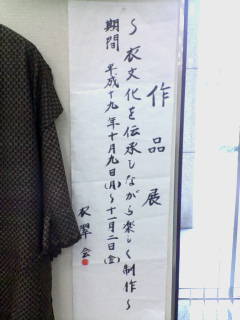 作品展
～衣文化を伝承しながら楽しく制作～
期間 平成十九年十月九日(月)～十一月二日(金)
衣翠会